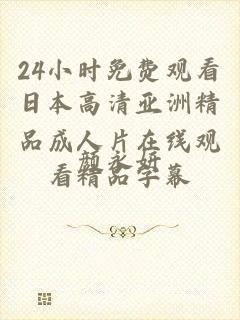 24小时免费观看
日本高清亚洲精
品成人片在线观
颜永妍
看精品字幕